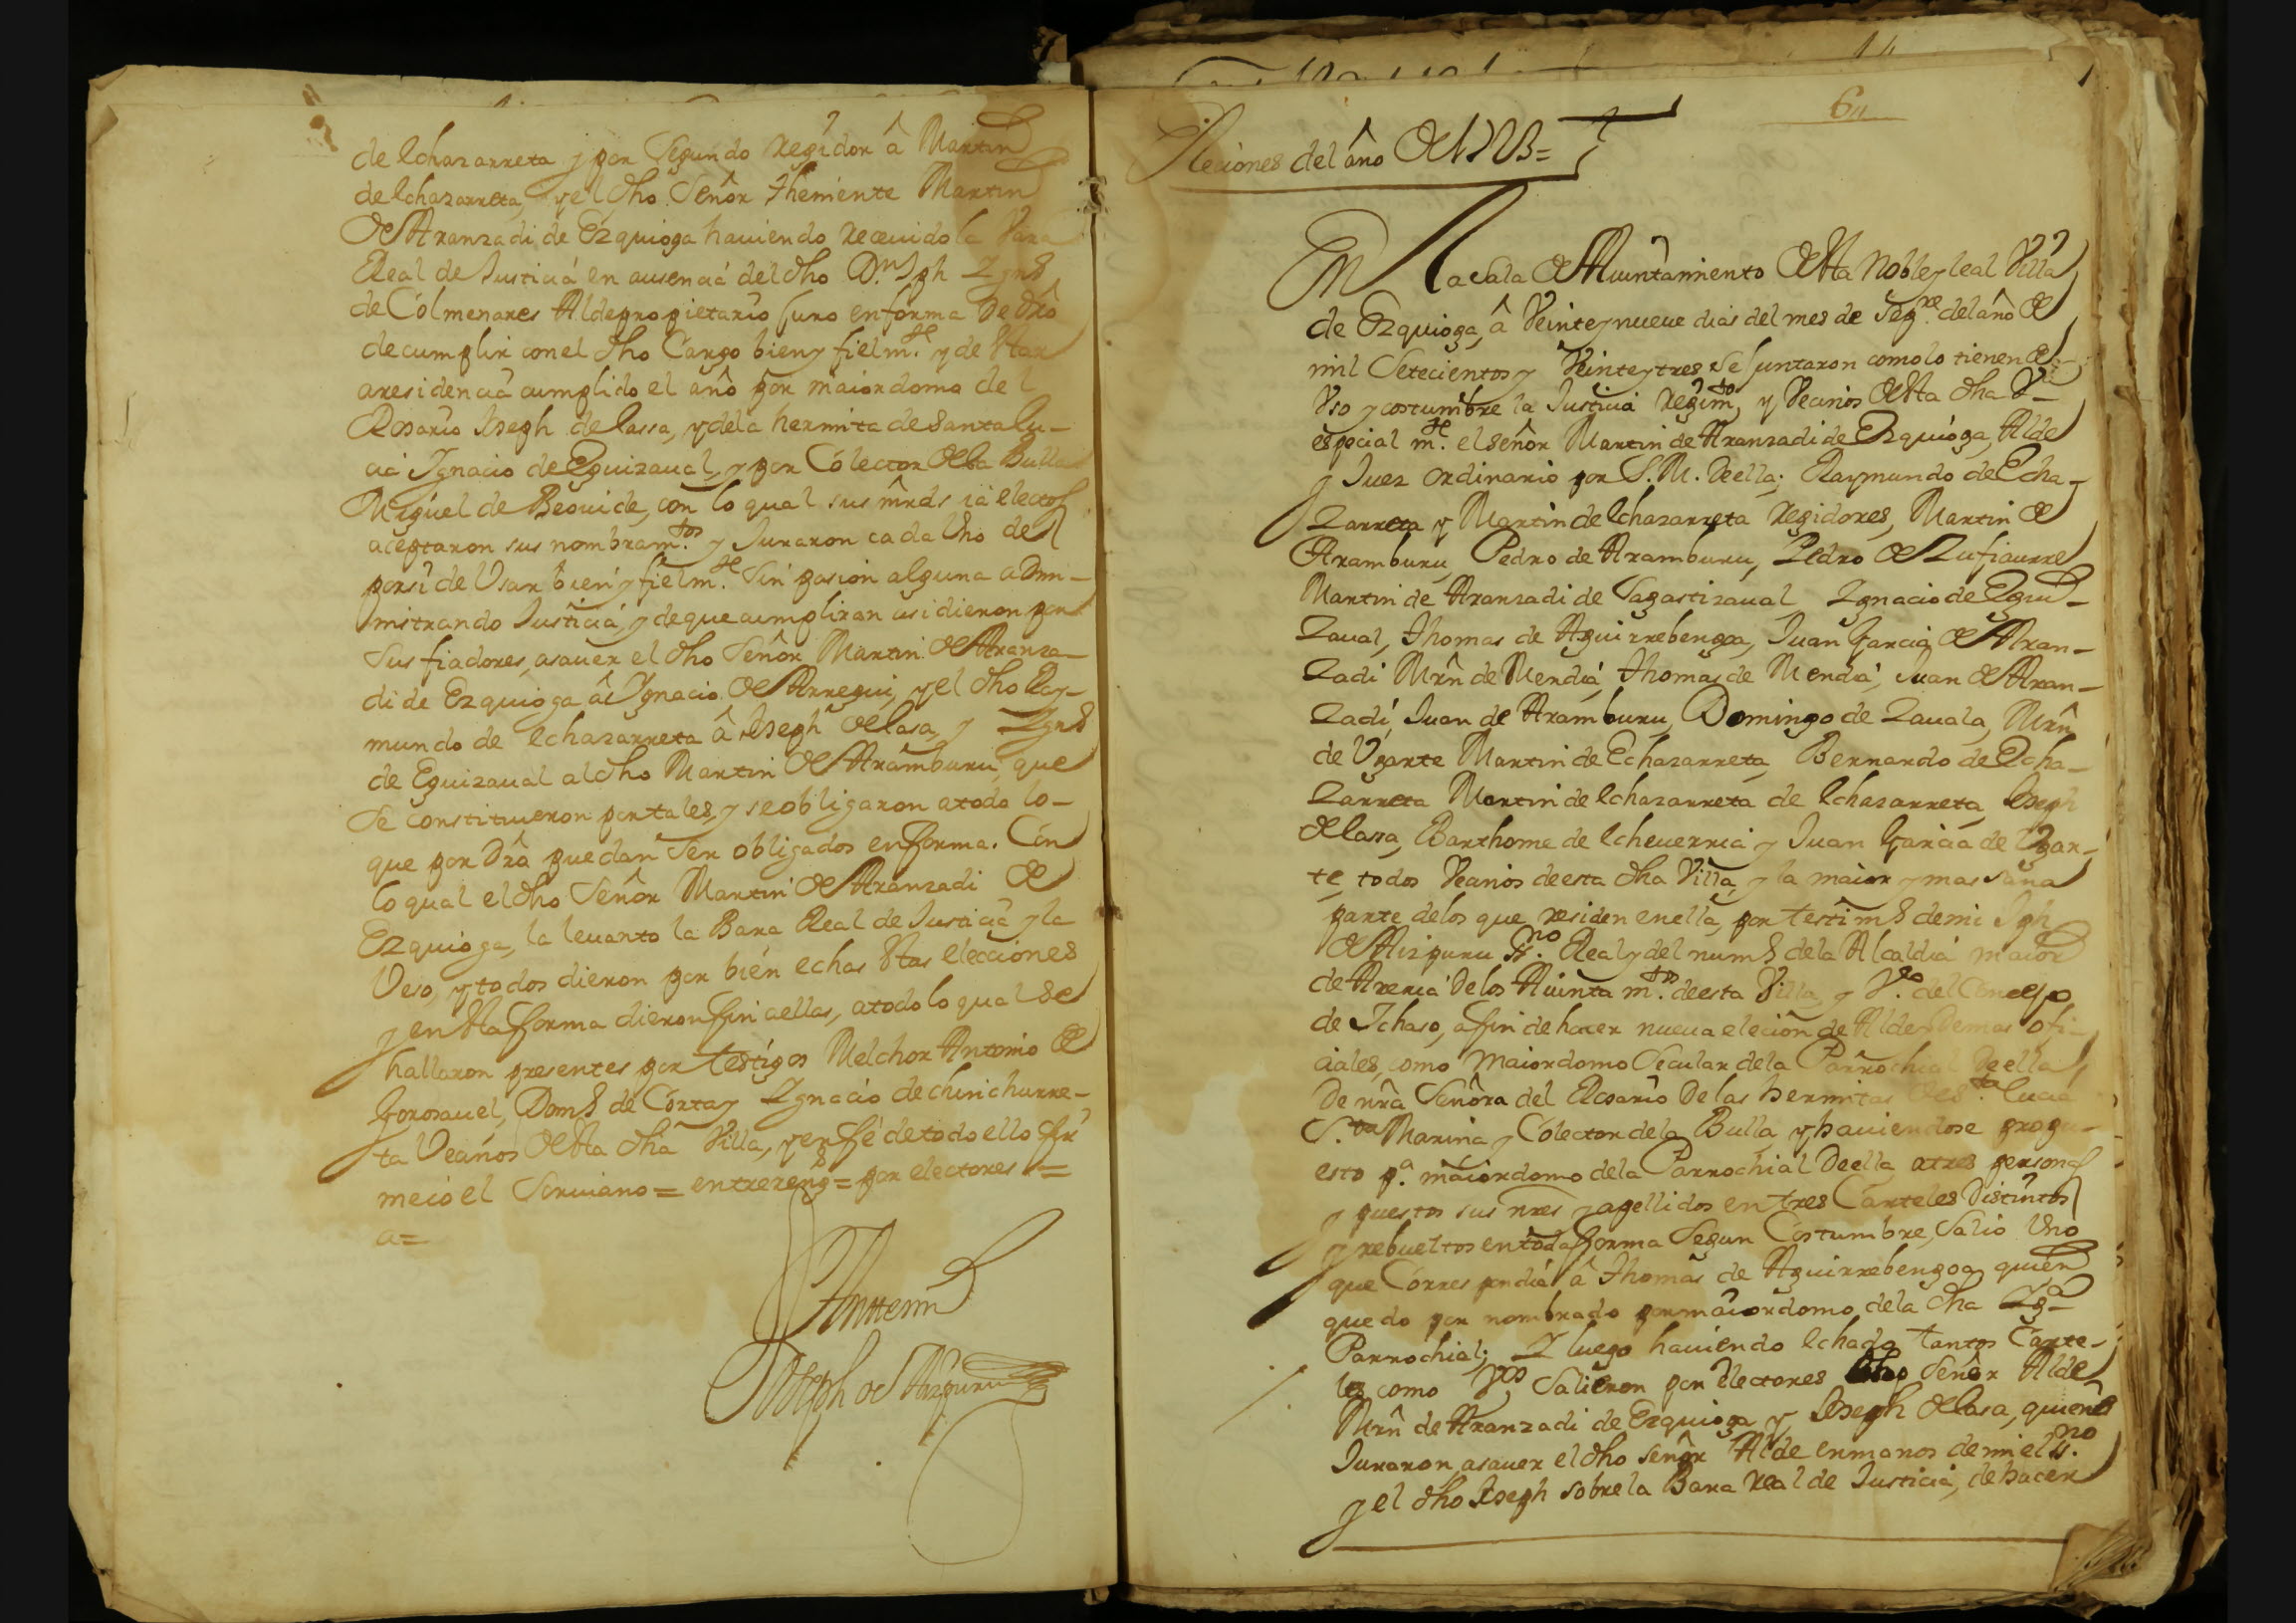 de Echazarreta y por Segundo Regidor â Martin
de Echazarreta, y el dho Señor Theniente Martin
de Aranzadi de Ezquioga hauiendo receuido la Vara
Real de Justicia en ausencia del dho Dn. Jph Ygno
de Colmenares Alde propietario Juro en forma de dro
de cumplir con el dho Cargo bien y fielmte. y de Star
a residencia cumplido el año por maiordomo del
Rosario Joseph de lassa, y de la hermita de Santa lu-
cia Ygnacio de Eguizaual, y por Colector de la Bulla
Miguel de Beouide, con lo qual sus mrds ia electos
aceptaron sus nombramtos. y Juraron cada Uno de
por si de Usar bien y fielmte. Sin pasion alguna admi-
nistrando Justicia, y de que cumpliran asi dieron por
Sus fiadores, asauer el dho Señor Martin de Aranza-
di de Ezquioga â Ygnacio de Arregui, y el dho Ray-
mundo de Echazarreta â Joseph de lasa, y Ygno
de Eguizaual al dho Martin de Aramburu, que
Se constituieron por tales, y se obligaron a todo lo-
que por Dro puedan Ser obligados en forma. Con
lo qual el dho Señor Martin de Aranzadi de
Ezquioga, la leuanto la Bara Real de Justicia y la
Veso, y todos dieron por bien echas Stas elecciones
y en Sta forma dieron fin a ellas, a todo lo qual se
hallaron presentes por testigos Melchor Antonio de
Gorosauel, Domo de Corta y Ygnacio de chinchurre-
ta Vecinos de Sta dha Villa, y en fe de todo ello fir
me io el Scriuano = entrerengs = por electores =
a =
Ante mi
Joseph de Aizpuru
64
Eleciones del año de 1723 =
En la Sala de Aiuntamiento de Sta Noble y leal Villa
de Ezquioga, â Veinte y nueue dias del mes de Sepre. del año de
mil Setecientos y Veinte y tres Se Juntaron como lo tienen de
Uso y costumbre la Justicia Regimto, y Vecinos de Sta dha Va
especialmte. el señor Martin de Aranzadi de Ezquioga, Alde
y Juez ordinario por S. M. de ella; Raymundo de Echa-
zarreta y Martin de Echazarreta Regidores, Martin de
Aramburu, Pedro de Aramburu, Pedro de Zufiaurre
Martin de Aranzadi de Sagastizaual Ygnacio de Egui-
zaual, Thomas de Aguirrebengoa, Juan Garcia de Aran-
zadi Mrn de Mendia, Thomas de Mendia, Juan de Aran-
zadi, Juan de Aramburu, Domingo de Zauala, Mrn
de Ugarte Martin de Echazarreta, Bernardo de Echa-
zarreta Martin de Echazarreta de Echazarreta, Joseph
de lasa, Barthome de Echeuerria y Juan Garcia de Ugar-
te, todos Vecinos de esta dha Villa, y la maior y mas sana
parte de los que residen en ella, por testimo de mi Jph
de Aizpuru Ssno. Real y del numo de la Alcaldia maior
de Areria de los Aiuntamtos. de esta Villa, y Vo. del Concejo
de Ichaso, a fin de hacer nueua elecion de Alde y demas ofi-
ciales, como Maiordomo Secular de la Parrochial de ella,
De nra Señora del Rosario de las hermitas de Sta. lucia
Sta. Marina y Colector de la Bulla, y hauiendose propu-
esto pa. maiordomo de la Parrochial de ella, a tres personas
y puestos sus nres y apellidos en tres Carteles Distintos
y rebueltos en toda forma Segun Costumbre, Salio Uno
que Correspondia â Thomas de Aguirrebengoa, quien
quedo por nombrado por maiordomo de la dha Yga
Parrochial; Y luego hauiendo Echado tantos Carte-
les como Vos Salieron por Electores dho Señor Alde
Mrn de Aranzadi de Ezquioga y Joseph de lasa, quienes
Juraron, asauer el dho señor Alde en manos de mi el Sno.
y el dho Joseph sobre la Bara real de Justicia, de hacer